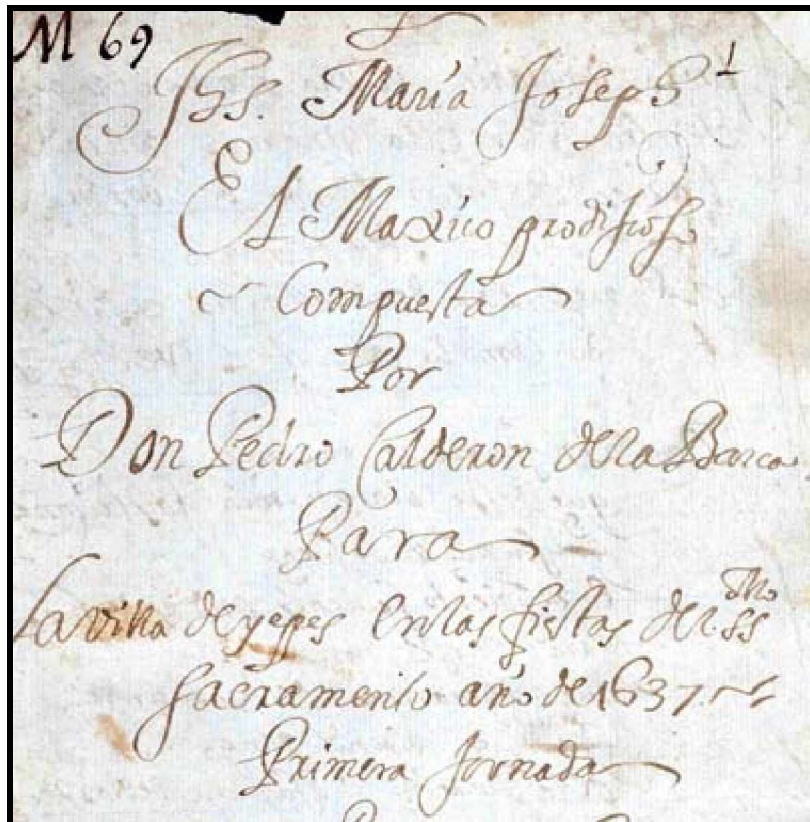 M 69
Jhs. Maria Joseph 1
El Maxico prodisioso
Compuesta
Por
Don Pedro Calderon de la Barca
Para
La villa de yepes en las fiestas del. SS.mo
Sacramento año de 1637.
Primera Jornada